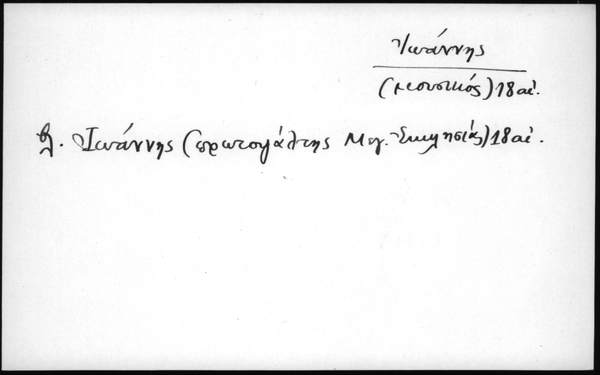 Ἰωάννης
(μουσικός) 18 αἰ.
βλ. Ἰωάννης (πρωτοψάλτης Μεγ. Ἐκκλησίας) 18 αἰ.